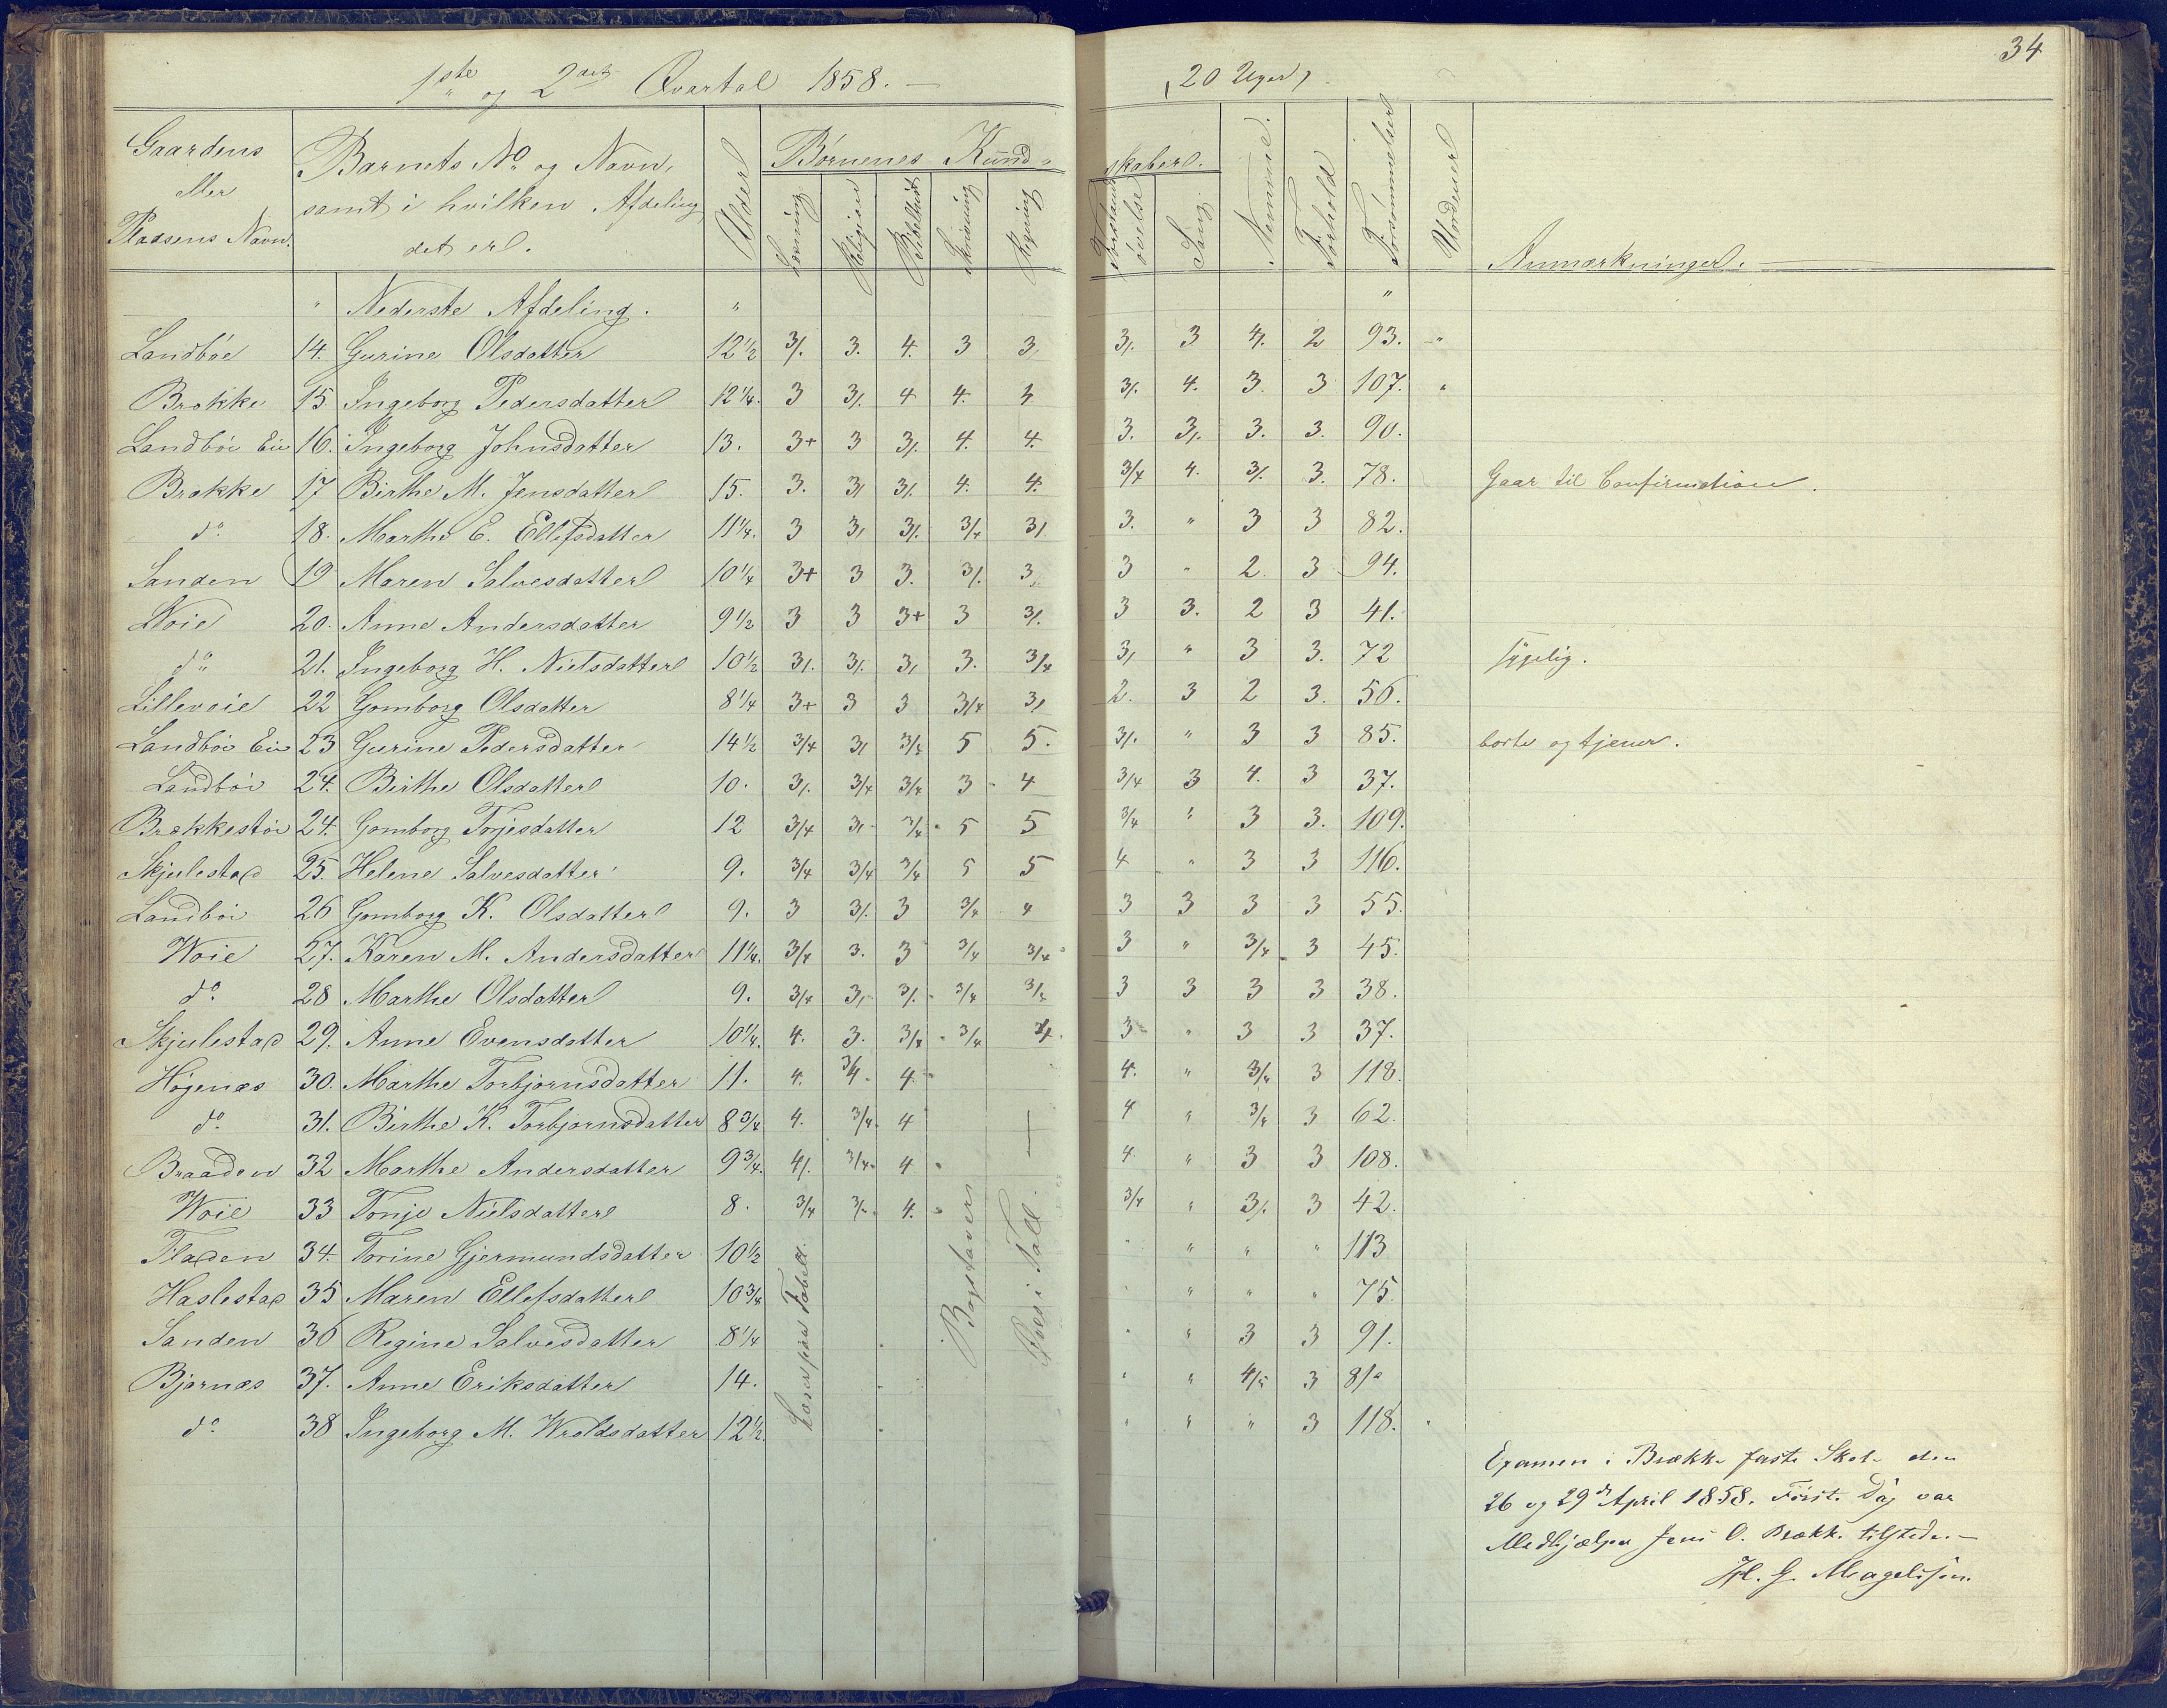 34
1ste og 2det Qvartal 1858. — (20 Uger)
Gaardens eller Pladsens Navn. | Barnets No og Navn, samt i hvilken Afdeling det er. | Alder | Børnenes Kundskaber. | Nemme. | Forhold | Forsømmelser | Uordener | Anmærkninger.
Læsning | Religion | Bibelhist | Skrivning | Regning | Forstands øvelse | Sang.
" Nederste Afdeling. " "
Landbøe 14. Gurine Olsdatter 12 1/2 3/. 3. 4. 3 3 3/. 3 4. 2 93. "
Brække 15 Ingeborg Pedersdatter 12 1/4. 3 3/. 4 4. 3/. 4. 3. 3 107. "
Landbøe Eie 16. Ingeborg Johnsdatter 13. 3+ 3 3/. 4. 4. 3. 3/. 3. 3. 90.
Brække 17 Birthe M. Jensdatter 15. 3. 3/ 3/. 4. 4. 3/4 4. 3/. 3. 78. Gaar til Confirmation.
do 18. Marthe E. Ellefsdatter 11 1/4. 3 3/ 3/. 3/4 3/ 3. " 3 3 82.
Sanden 19 Maren Salvesdatter 10 1/4 3+ 3 3. 3/. 3/. 3 " 2. 3 94.
Woie 20. Anne Andersdatter 9 1/2 3 3 3+ 3 3/. 3 3. 2 3 41.
do 21. Ingeborg H. Nielsdatter 10 1/2 3/. 3/. 3/ 3. 3/4 3/ " 3 3. 72 sygelig.
Lillevoie 22 Gomborg Olsdatter 8 1/4 3+ 3 3 3/4 3/ 2. 3 2 3. 56.
Landbøe Eie 23 Gurine Pedersdatter 14 1/2 3/4 3/ 3/4 5 5. 3/. " 3 3 85. borte og tjener.
Landbøe 24. Birthe Olsdatter 10. 3/. 3/4 3/4 3 4 3/4 3 4. 3 37.
Brækkestøe 24. Gomborg Torjesdatter 12 3/4 3/ 3/4 5 5 3/4 " 3 3. 109.
Skjulestad 25. Helene Salvesdatter 9. 3/4 3/4 3/4 5 5 4 " 3 3 116.
Landbøe 26 Gomborg K. Olsdatter 9. 3 3/. 3 3/4 4 3 3 3 3 55.
Woie 27. Karen M. Andersdatter 11 1/4. 3/4 3. 3 3/4 3/4 3 " 3/4 3 45.
do 28 Marthe Olsdatter 9. 3/4 3/ 3/. 3/4 3/4 3 3 3 3 38.
Skjulestad 29. Anne Evensdatter 10 1/4. 4. 3. 3/4 3/4 4. 3 " 3 3 37.
Høgenæs 30. Marthe Torbjørnsdatter 11. 4. 3/4 4 4. " 3/4 3 118.
do 31. Birthe K. Torbjørnsdatter 8 3/4 4. 3/4 4 — 4 " 3/4 3 62.
Braaden 32 Marthe Andersdatter 9 3/4. 4/. 3/4 4 4. " 3 3 108.
Woie 33 Tonje Nielsdatter 8. 3/4 3/. 4. 3/4 " 3/. 3 42.
Fladen 34. Torine Gjermundsdatter 10 1/2 " " " " 113
Haslestad 35 Maren Ellefsdatter 10 3/4 " " " " 75.
Sanden 36 Regine Salvesdatter 8 1/4 " " 3 3 91.
Bjørnæs 37. Anne Eriksdatter 14. " " 4/5 3 81
do 38 Ingeborg M. Wroldsdatter 12 1/2. " " " 3 118.
Læser paa Tabell.
Bogstaver
Øves i Tall.
Examen i Brække faste Skole den
26 og 29de April 1858. Første Dag var
Medhjælper Jens O. Brække tilstede. —
Hl. G. Magelssen.